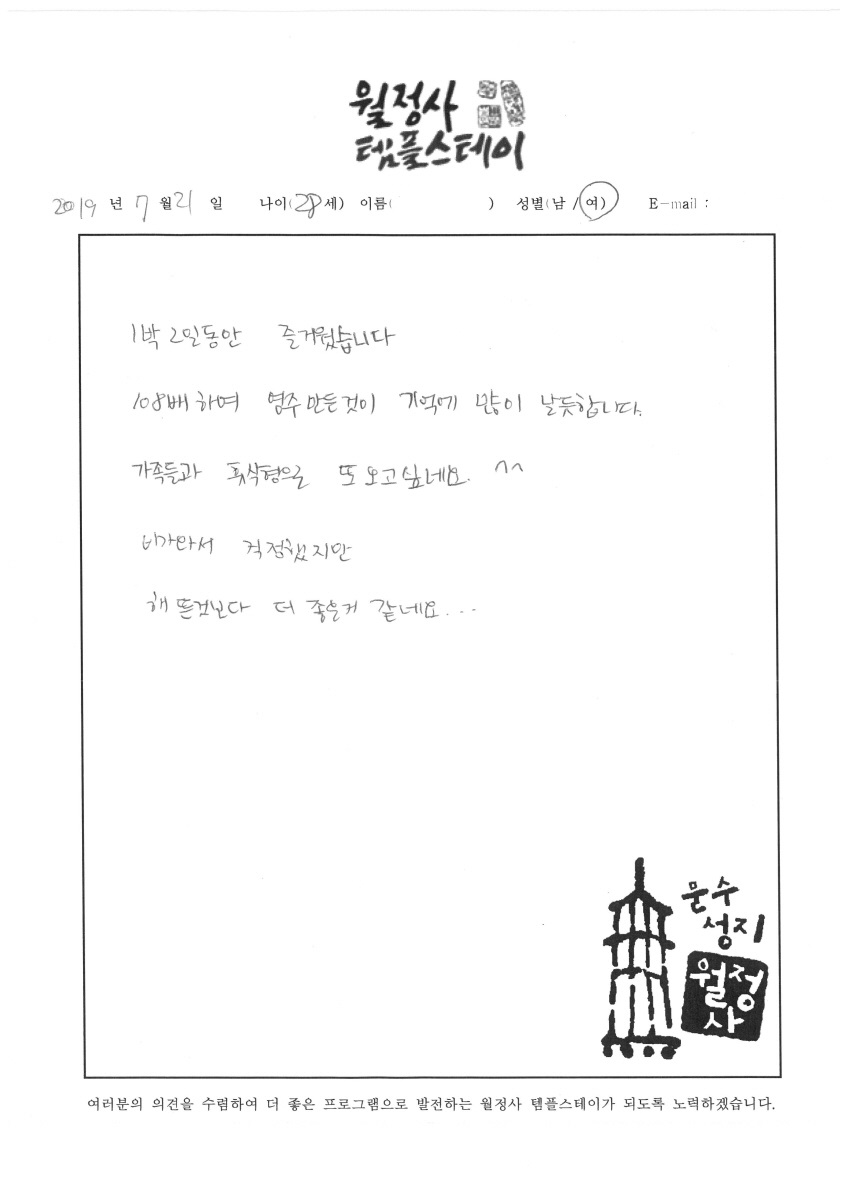 월정사
템플스테이
2019 년 7 월 21 일 나이(28세) 이름( ) 성별(남/여) E-mail :
1박 2일동안 즐거웠습니다
108배 하여 염주 만든것이 기억에 많이 남듯합니다.
가족들과 휴식형으로 또 오고싶네요. ^^
비가와서 걱정했지만
해 뜬것보다 더 좋은거 같네요...
문수
성지
월정
사
여러분의 의견을 수렴하여 더 좋은 프로그램으로 발전하는 월정사 템플스테이가 되도록 노력하겠습니다.